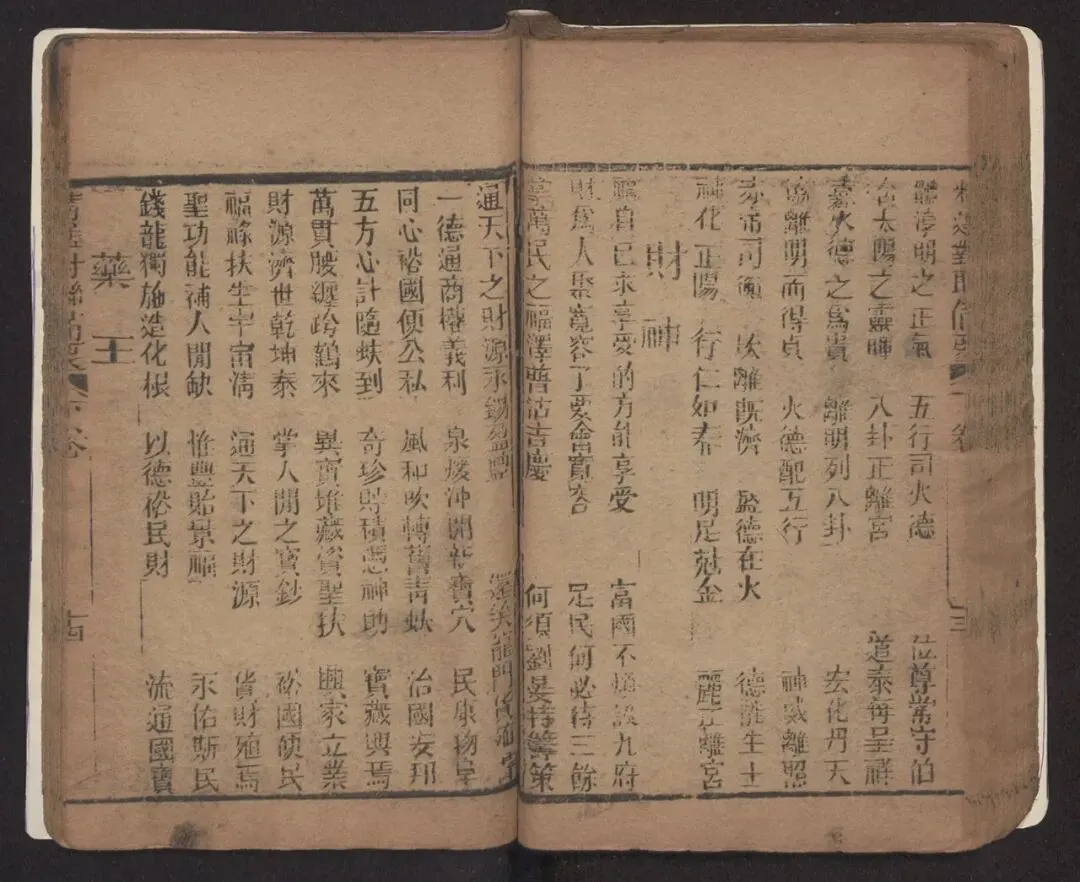 精選對聯備要
體淳明之正氣 五行司火德 位尊常守伯
合太陽之靈暉 八卦正離宮 道泰每呈祥
嘉火德之爲貴 離明列八卦 宏化丹天
協離明而得貞 火德配五行 神威離照
赤帝司衡 以離既濟 盛德在火 德能生土
神化正陽 行仁如春 明足尅金 麗正離宮
財神
福自已求享受的方能享受 富國不煩設九府
財爲人聚寬容了要會寬容 足民何必待三餘
掌萬民之福澤普沾吉慶 何須劉晏持籌策
通天下之財源永錫盈豐
一德通商權義利 泉煖沖開新寶穴 民康物阜
同心裕國便公私 風和吹轉舊青蚨 治國安邦
五方心計隨蚨到 奇珍貯積憑神助 寶藏興焉
萬貫腰纏跨鶴來 異寶堆藏資聖扶 興家立業
財源濟世乾坤泰 掌人間之寶鈔 裕國便民
福祿扶生宇宙清 通天下之財源 貨財殖焉
聖功能補人間缺 惟豐貽景福 永佑斯民
錢龍獨施造化根 以德裕民財 流通國寶
藥王